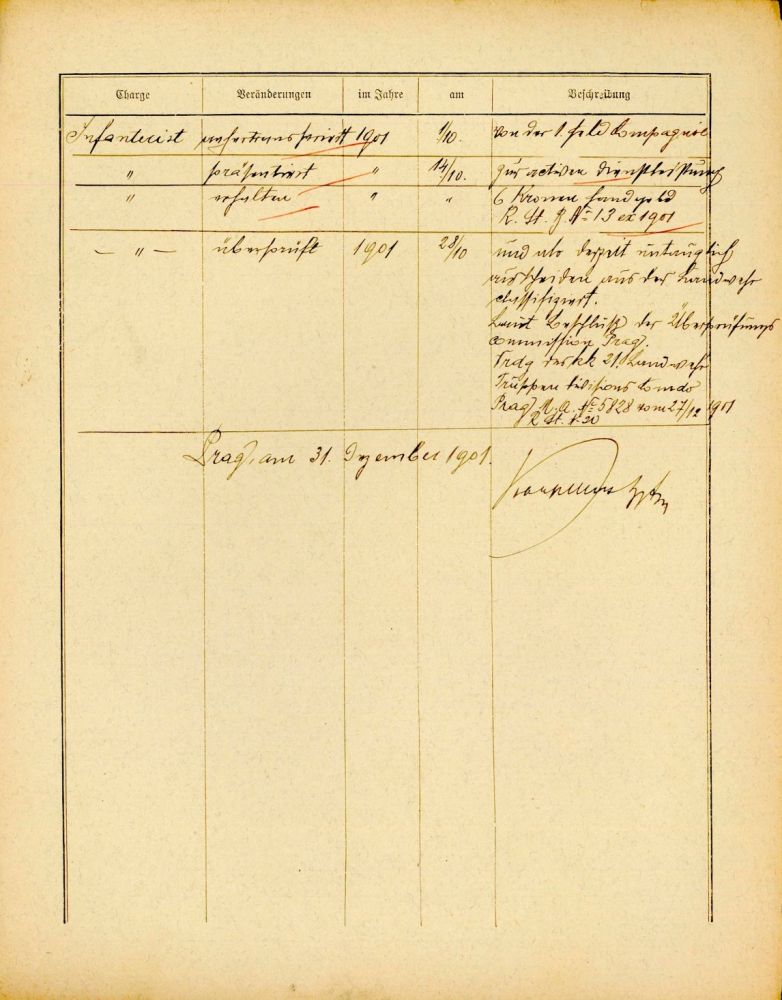 Charge Veränderungen im Jahre am Beschreibung
Infanterist transferirt 1901 1/10. von der 1. Feld Compagnie
" präsentirt " 14/10. zur activen Dienstleistung
" erhalten " " 6 Kronen Handgeld
R. St. G. № 13 ex 1901
— " — überprüft 1901 28/10 und als derzeit untauglich
ausscheiden aus der Landwehr
classifiziert.
Laut Beschluß der Überprüfungs
Commission Prag.
Vrdg des kk 21. Landwehr
Truppen Divisions Comdo
Prag M. A. № 5828 vom 27/12 1901
R. St. № 30
Prag, am 31. Dezember 1901.